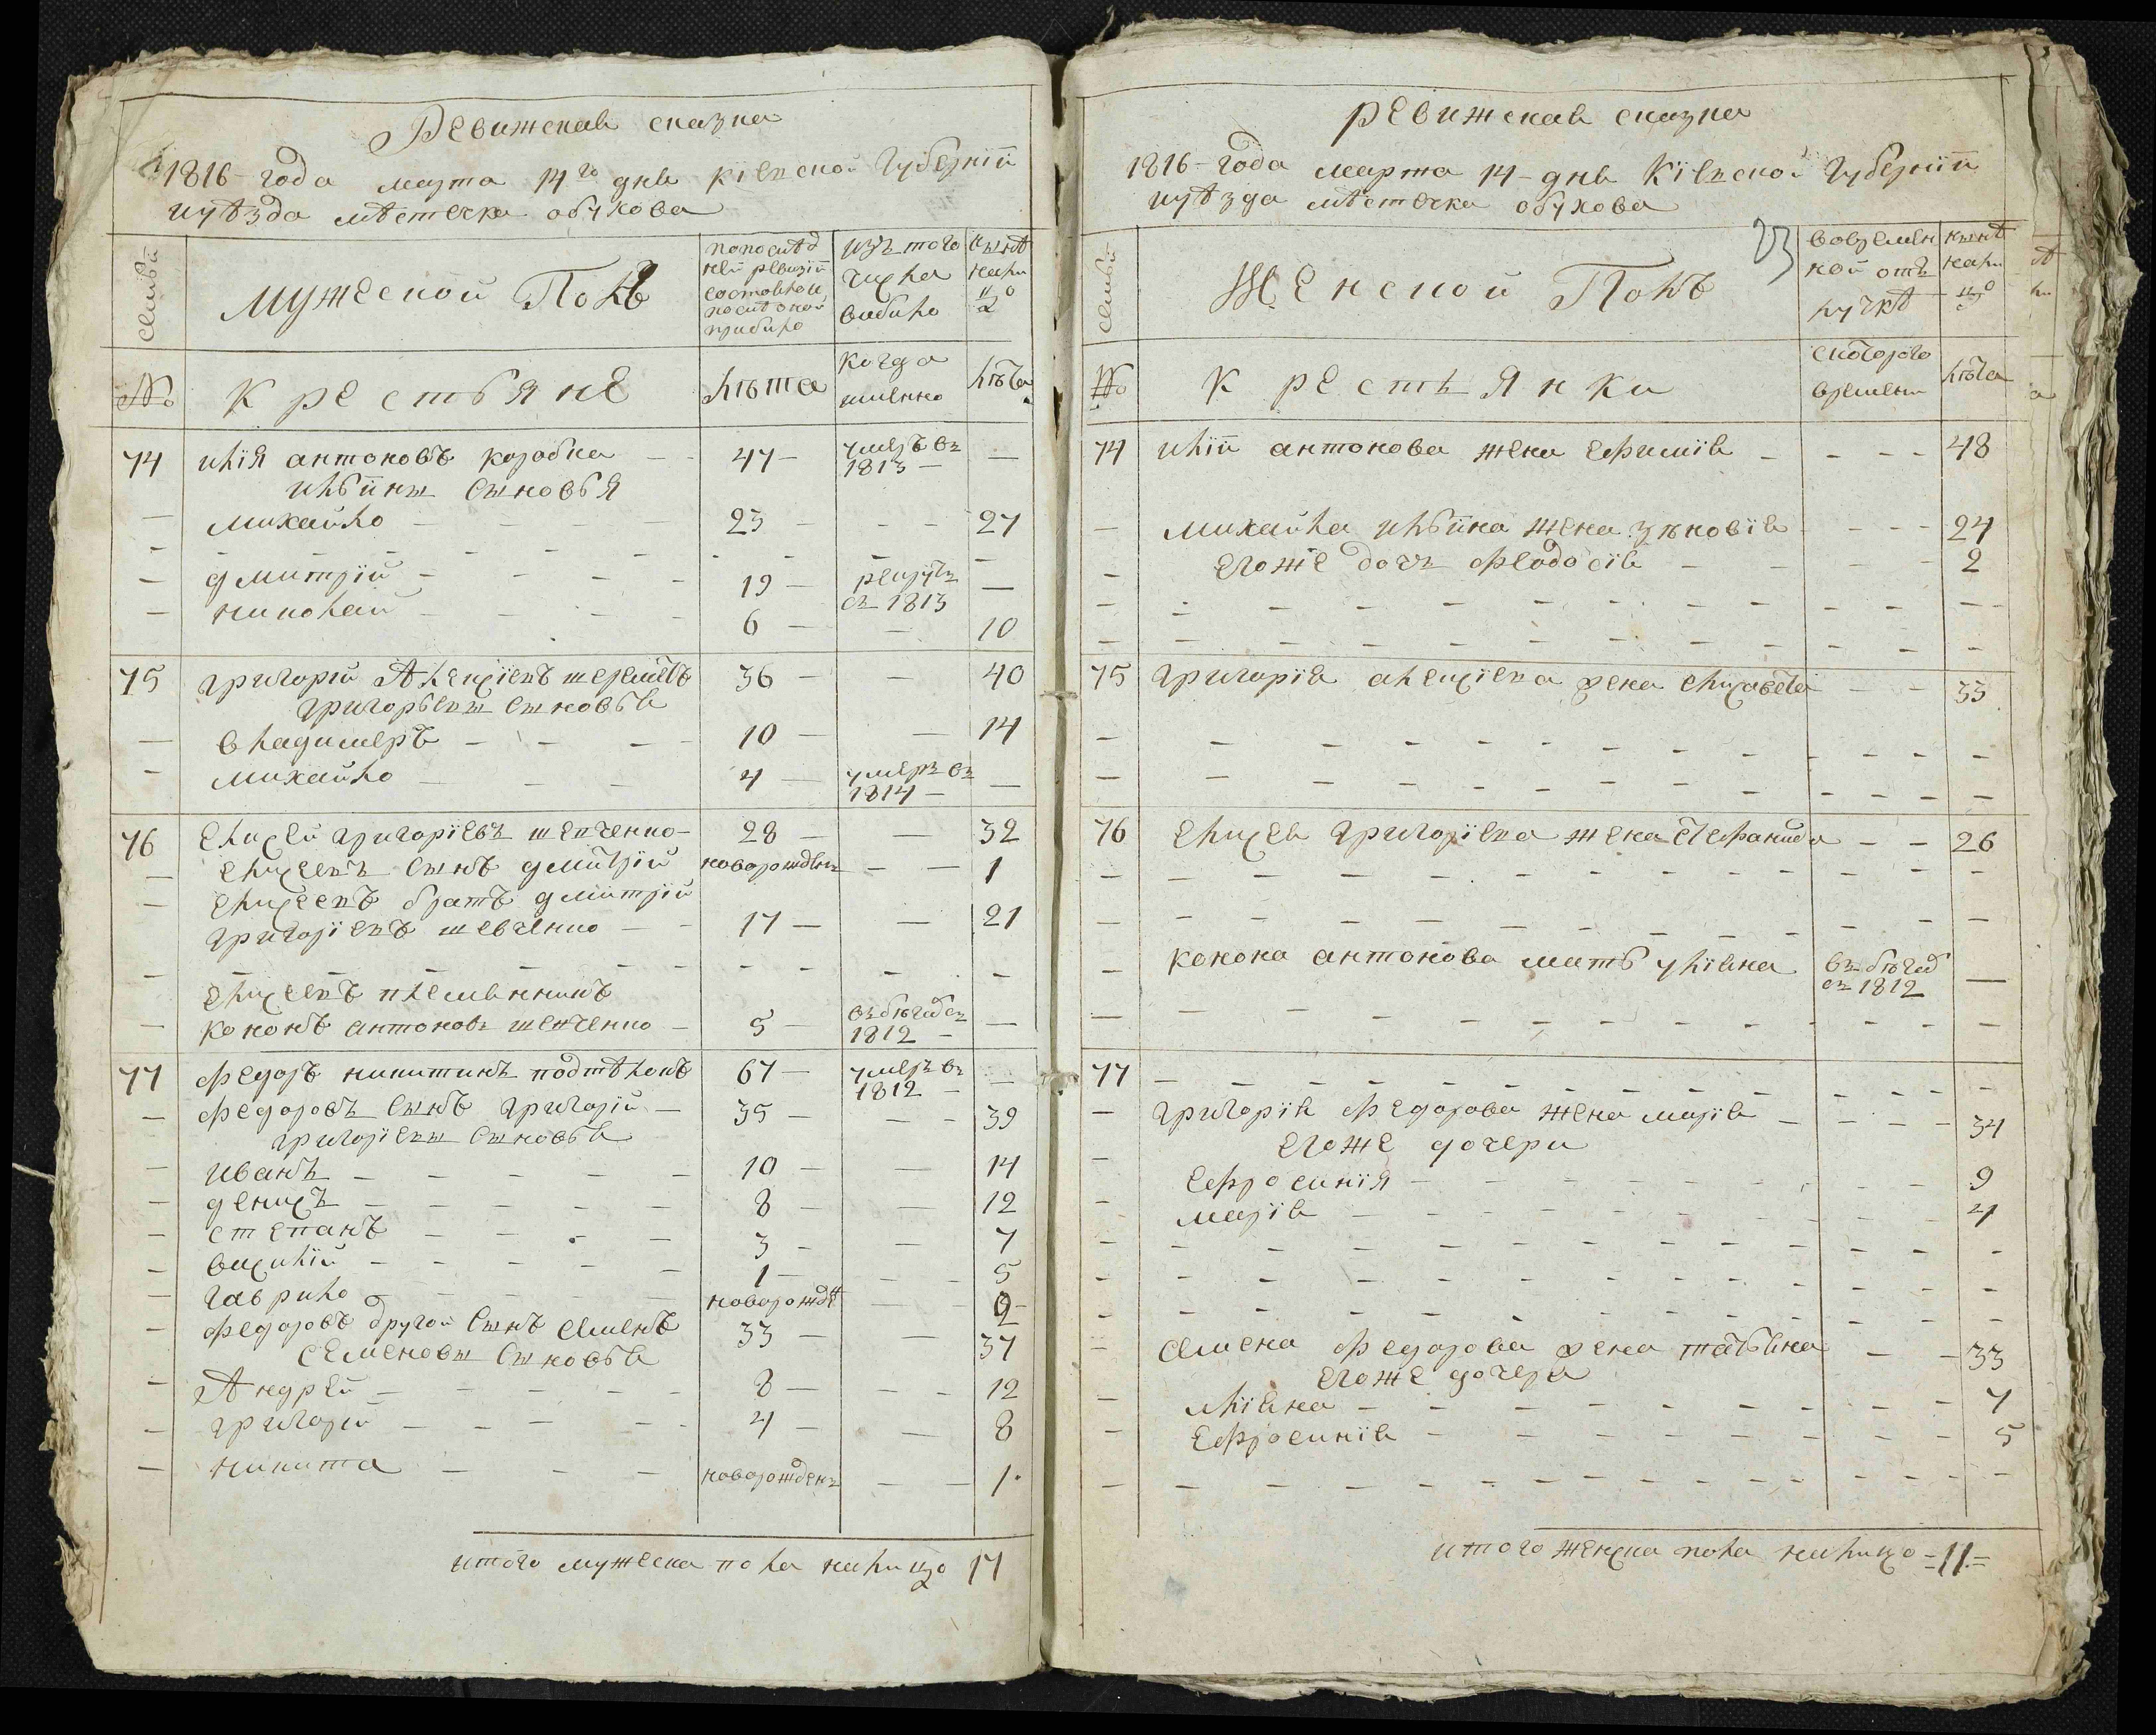 Ревижская сказка
1816 года марта 14го дня кіевской губерніи
и уѣзда мѣстечка обухова
семьи
мужеской Полъ
по послѣд
ней ревизіи
состояло и
после оной
прибыло
изъ того
числа
выбыло
нынѣ
нали
цо
№
Крестьяне
лѣта
когда
именно
лѣта
74 илія антоновъ коробка — 47 — умеръ въ
1813 — —
ильины сыновья
— михайло — 23 — — 27
— дмитрій — 19 — рекрутъ
съ 1813 —
— николай — 6 — — 10
75 григорій Алексіевъ шереметъ 36 — — 40
григорьевы сыновья
— владимеръ — 10 — — 14
— михайло — 4 — умеръ въ
1814 — —
76 елисей григоріевъ шевченко — 28 — — 32
— елисеевъ сынъ дмитрій новорожденъ — — 1
— елисеевъ братъ дмитрій
григоріевъ шевченко — 17 — — 21
елисеевъ племянникъ
— кононъ антоновъ шевченко — 5 — въ бѣгахъ съ
1812 — —
77 федоръ никитинъ подтѣлокъ 67 — умеръ въ
1812 — —
— федоровъ сынъ григорій — 35 — — 39
григоріевы сыновья
— иванъ — 10 — — 14
— денисъ — 8 — — 12
— степанъ — 3 — — 7
— василій — 1 — — 5
— гаврило — новорожде — — 2
— федоровъ другой сынъ семенъ 33 — — 37
семеновы сыновья
— Андрей — 8 — — 12
— григорій — 4 — — 8
— никита — новорожденъ — — 1
итого мужеска пола налицо 17
ревижская сказка
1816 года марта 14 дня кіевской губерніи
и уѣзда мѣстечка обухова
23
семьи
Женской Полъ
во времен
ной от
лучкѣ
нынѣ
нали
цо
№
Крестьянки
съ которого
времени
лѣта
74 иліи антонова жена ефимія — — 48
— михайла ильина жена зѣновія — — 24
— егоже дочь феодосія — — 2
75 григорія алексіева жена елисавета — — 33
76 елисея григоріева жена стефанида — — 26
— конона антонова мать уліяна въ бѣгах
съ 1812 —
77 — — —
— григорія федорова жена марія — — 34
— егоже дочери
ефросинія — — 9
— марія — — 4
— семена федорова жена татьяна — — 33
егоже дочери
— уліяна — — 7
— ефросинія — — 5
итого женска пола налицо = 11 =